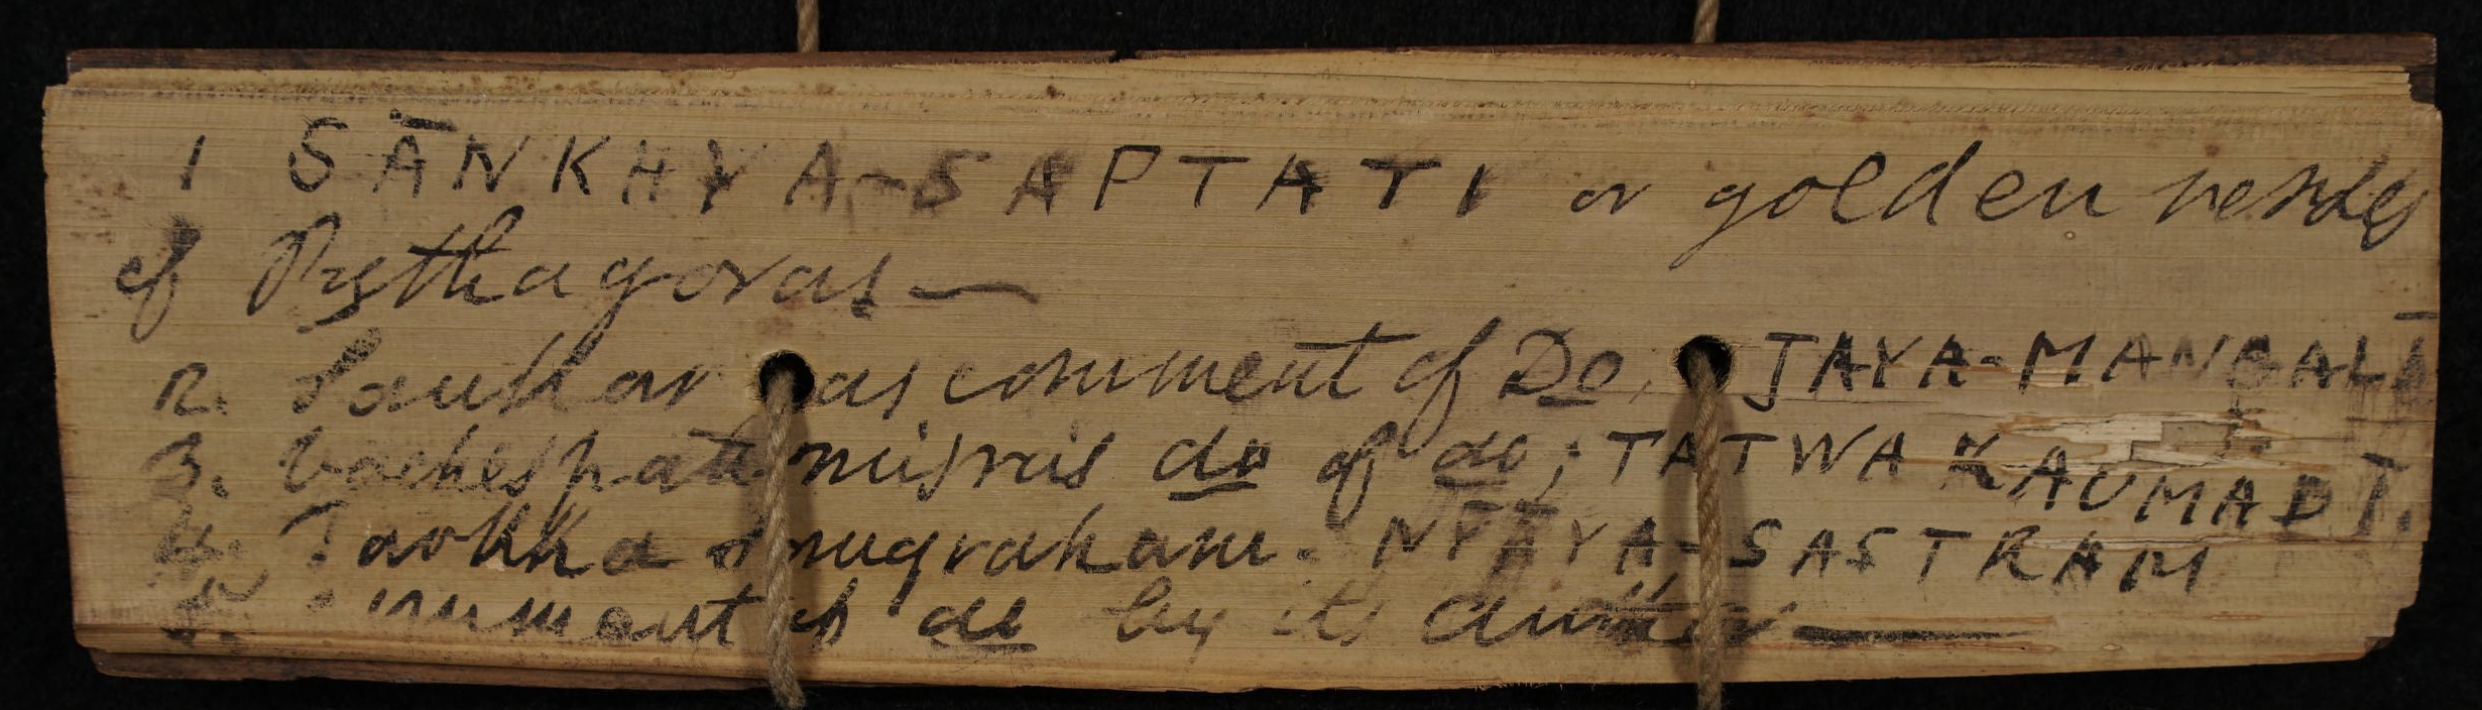 1 SĀNKHYA-SAPTATI or golden verses
of Pythagoras —
2. comment of Do. JAYA-MANGALĀ
3. Vachespati misris do of do; TATWA KAUMADĪ.
4. Tarkka anugraham. NYĀYA-SASTRAM
5. comment of do by its author —